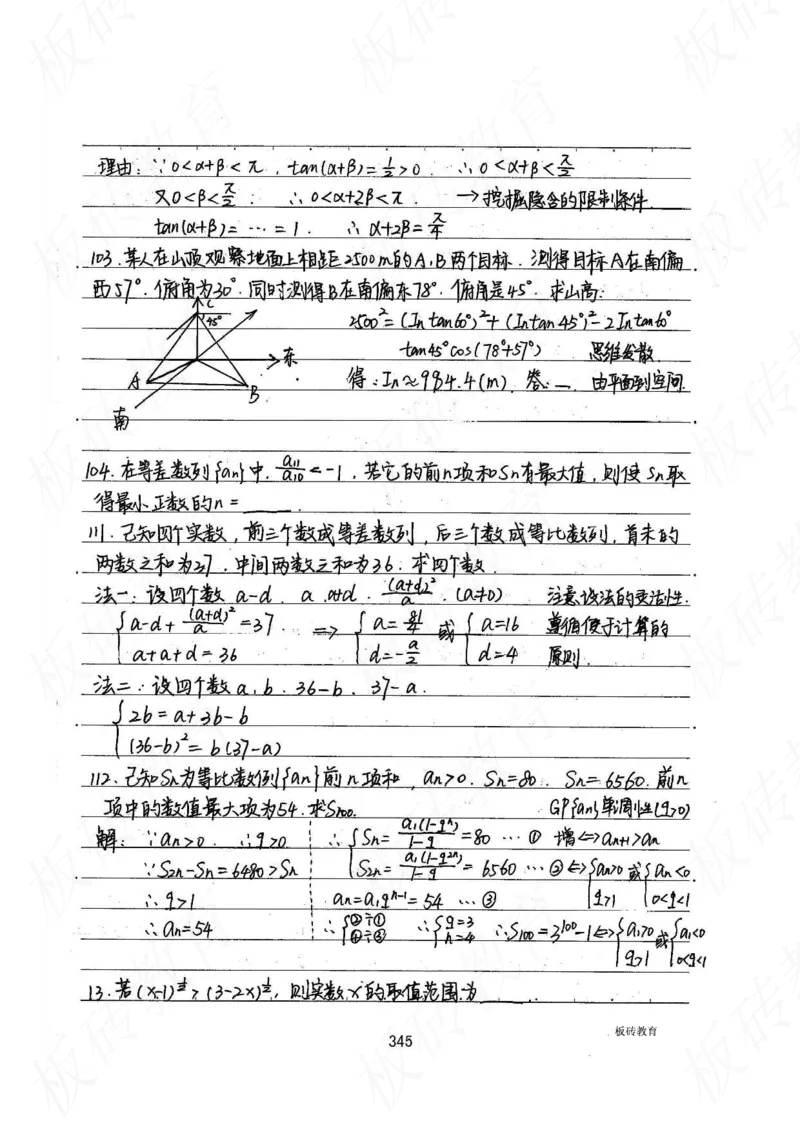 理由: ∵0<α+β<π, tan(α+β)=1/2>0 ∴0<α+β<π/2
又0<β<π/2 ∴0<α+2β<π. →挖掘隐含的限制条件.
tan(α+β)=…=1. ∴α+2β=π/4
103.某人在山顶观察地面上相距2500m的A,B两个目标.测得目标A在南偏
西57°.俯角为30°.同时测得B在南偏东78°.俯角是45°.求山高:
C
45°
东
A
B
南
2500²=(In tan60°)²+(In tan45°)²-2In tan60°
tan45°cos(78°+57°) 思维发散.
得:In≈984.4(m). 答:—. 由平面到空间.
104.在等差数列{an}中, a11/a10<-1, 若它的前n项和Sn有最大值,则使Sn取
得最小正数的n=____.
111.已知四个实数,前三个数成等差数列,后三个数成等比数列,首末的
两数之和为37.中间两数之和为36.求四个数.
法一:设四个数 a-d. a. a+d. (a+d)²/a. (a≠0) 注意设法的灵活性.
{a-d+(a+d)²/a=37 ⇒ {a=81/4 或 {a=16 遵循便于计算的
a+a+d=36 d=-9/2 d=4 原则.
法二:设四个数a,b.36-b.37-a.
{2b=a+36-b
(36-b)²=b(37-a)
112.已知Sn为等比数列{an}前n项和, an>0. Sn=80. S2n=6560.前n
项中的数值最大项为54.求S100. GP{an}单调性(q>0)
解: ∵an>0 ∴q>0 ∴{Sn=a1(1-qⁿ)/1-q=80 … ① 增⇔an+1>an
∵S2n-Sn=6480>Sn S2n=a1(1-q²ⁿ)/1-q=6560 … ② ⇔{an>0 或 {an<0.
∴q>1 an=a1qⁿ⁻¹=54 … ③ q>1 0<q<1
∴an=54 ∴{②÷① ∴{q=3 ∴S100=3¹⁰⁰-1 ⇔{a1>0 或 {a1<0
n=4 q>1 0<q<1
13.若(x-1)^½>(3-2x)^½,则实数x的取值范围为____.
345
板砖教育